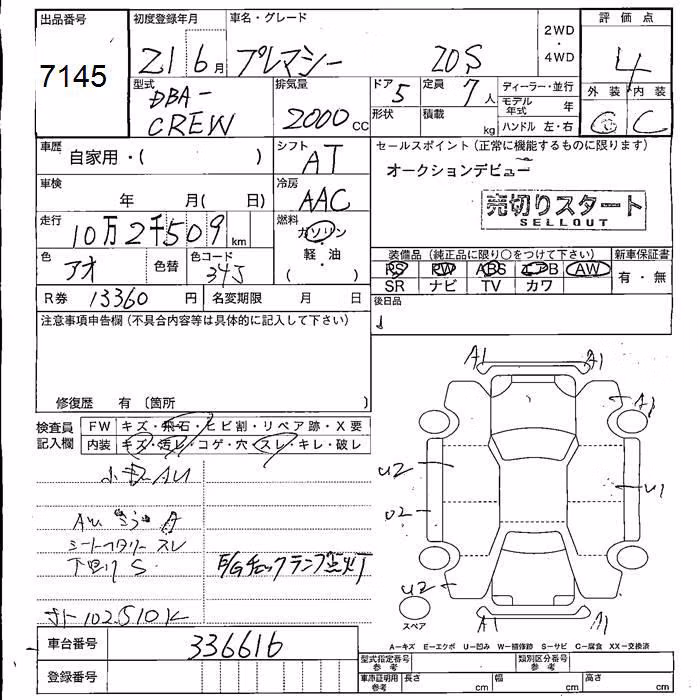 出品番号
7145
初度登録年月
21 6月
車名・グレード
プレマシー 20S
2WD
・
4WD
評価点
4
型式
DBA-
CREW
排気量
2000cc
ドア 5
形状
定員 7人
積載 kg
ディーラー・並行
モデル年式 年
ハンドル 左・右
外装 内装
C C
車歴 自家用・( )
シフト AT
セールスポイント (正常に機能するものに限ります)
オークションデビュー
車検 年 月( 日)
冷房 AAC
売切りスタート
SELLOUT
走行 10万2千509km
燃料
ガソリン
軽・油
( )
色 アオ 色替
色コード 34J
装備品 (純正品に限り○をつけて下さい)
PS PW ABS エアB AW
SR ナビ TV カワ
新車保証書
有・無
R券 13360円
名変期限 月 日
後日品
注意事項申告欄(不具合内容等は具体的に記入して下さい)
修復歴 有 〔箇所 〕
検査員記入欄
FW キズ・飛石・ヒビ割・リペア跡・X要
内装 キズ・汚レ・コゲ・穴・スレ・キレ・破レ
シートヘタリー スレ
下回り S
E/Gチェックランプ点灯
102,510K
A1 A1
A1
U2
U1
U2
U2
A1 A1
スペア
車台番号 336616
登録番号
A-キズ E-エクボ U-凹み W-補修跡 S-サビ C-腐食 XX-交換済
型式指定番号 参考
類別区分番号 参考
車庫証明用 参考
長さ cm
幅 cm
高さ cm